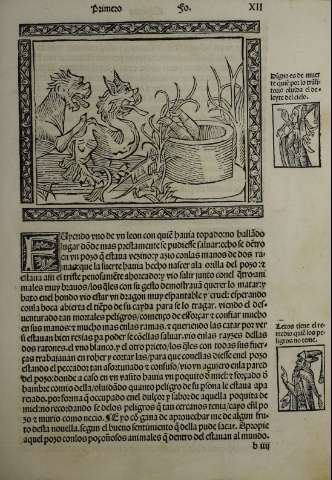 Primero Fo. XII
Digno es de muer
te quiē por lo trāsi
torio oluida el de
leyte del cielo.
Uyendo vno de vn leon con quiē hauia topado no hallādo
lugar dōde mas prestamente se pudiesse saluar: echo se dētro
en vn pozo q̄ estaua vezino: y asio con las manos de dos ra
mas que la suerte hauia hecho nacer ala orilla del pozo: z
estaua assi el triste pensando
males muy brauos / los q̄les con su gesto demostrauā querer lo matar: y
bato enel hondo vio estar vn dragon muy espantable y cruel: z esperando
con la boca abierta el tiēpo de su cayda para se lo tragar. viendo el des-
uenturado tan mortales peligros / començo de esforçar z confiar mucho
en sus manos: z mucho mas enlas ramas. z queriendo las catar por ver
si estauan bien rezias pa poder se cōellas saluar. vio enlas rayzes dellas
dos ratones. el vno blanco. y el otro prieto / los q̄les con todas sus fuer
ças trabajauan en roher y cortar las / para que conellas diesse enel pozo
estando el peccador tan afortunado z confuso / vio vn agujero enla pared
del pozo: donde a caso en vn vasillo hauia vn poquito d miel: z forçado d
hambre comio della / oluidādo quanto peligro de su psona le estaua apa
rejado. por forma q̄ occupado enel dulçor y sabor de aquella poquita de
miel: no recordando se delos peligros q̄ tan cercanos tenia / cayo enl po
zo z murio como necio. E yo cō gana de aprouechar me de algun fru
to desta nouella. segun el bueno sentimiento q̄ della pude sacar. Apropie
aquel pozo con los poçoñosos animales q̄ dentro del estauan al mundo.
b iiij
Lexos tiene el re
medio quiē los pe
ligros no teme.